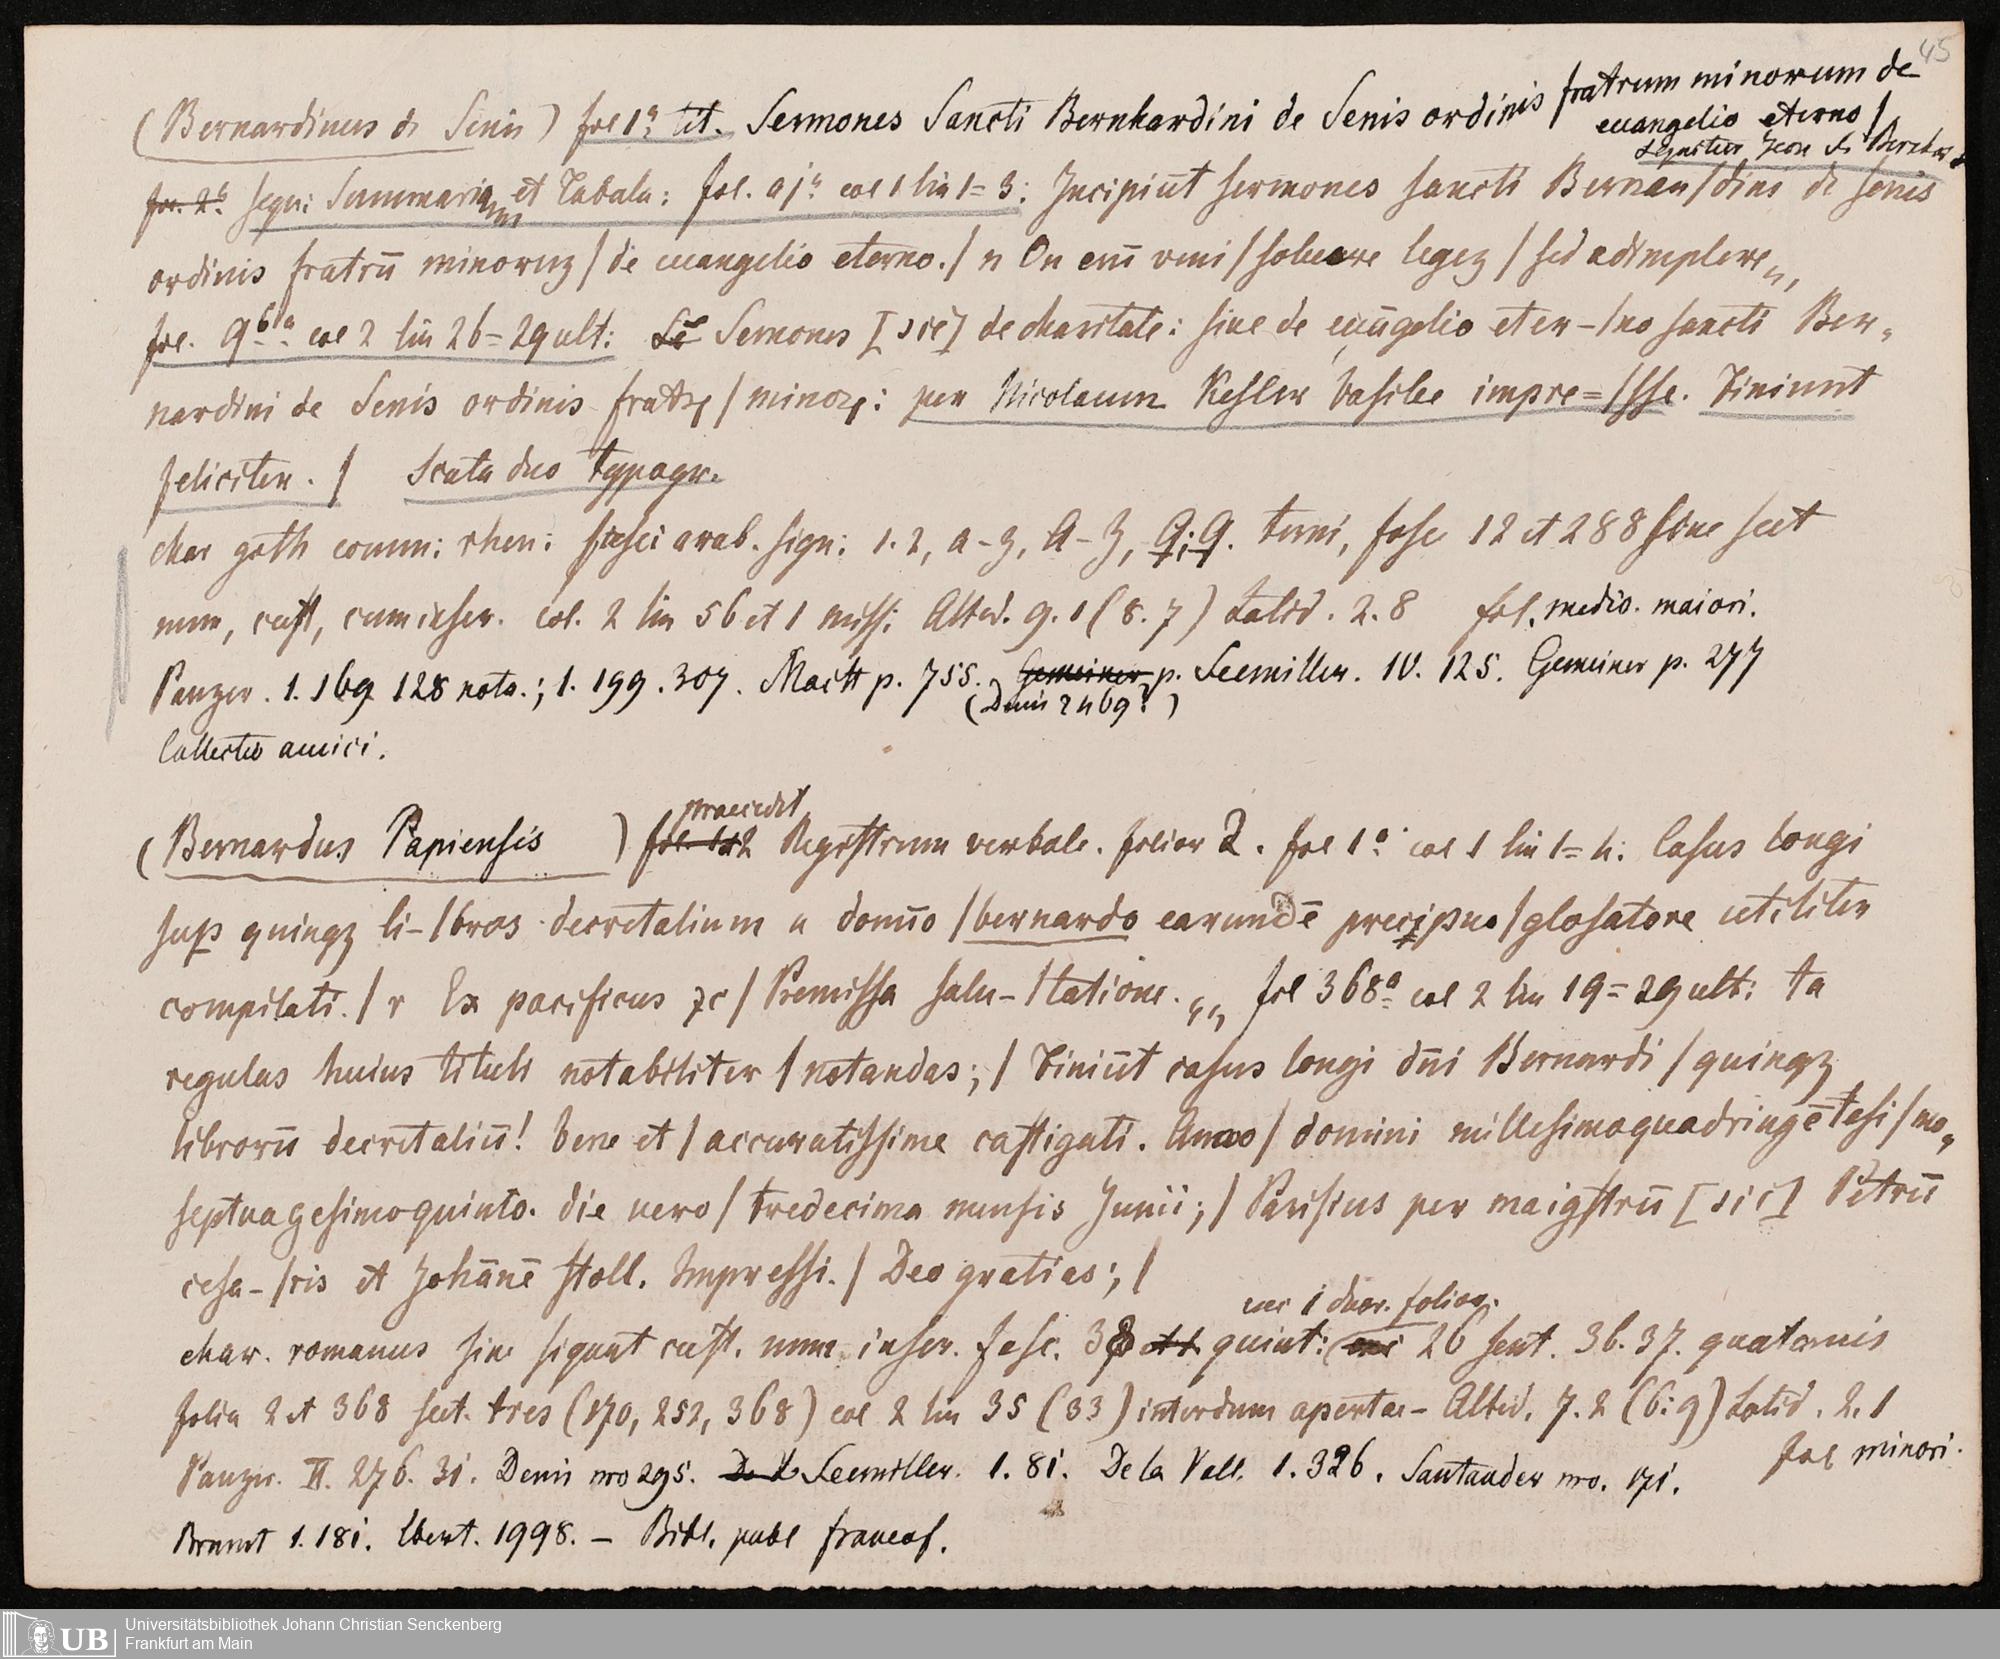 45
(Bernardinus de Senis) fol 1a tit. Sermones Sancti Bernhardini de Senis ordinis fratrum minorum de
euangelio eterno /
sequitur Icon S. Bernhard
fol. 2a sequ: Summarium et Tabula: fol. a ja col 1 lin 1=3: Incipiūt sermones sancti Bernar/dini de senis
ordinis fratrū minoruz / de euangelio eterno. / n On eni veni / soluere legez / sed adimplere „
fol. 96a col 2 lin 26=29 ult: Sermones [sic] de charitate: siue de euāgelio eter-/no sancti Ber„
nardini de Senis ordinis fratrꝝ / minorꝝ: per Nicolaum Kesler basilee impre=/sse. Finiunt
feliciter. / Scuta duo typogr.
char goth comm: rhen: fusci arab. sign: 1. 2, a-z, A-Z, terni, fasc 12 et 288 sine sect
num, cust, cum inscr. col. 2 lin 56 et 1 miss: Altid. 9. 1 (8. 7) Latid. 2. 8 fol. medio. maiori.
Panzer. 1. 169 128 nota.; 1. 199. 307. Maitt p. 755. Gemeiner p. Seemiller. IV. 125. Gemeiner p. 277
(Denis 2469?)
Collectio amici.
praecedit
(Bernardus Papiensis) fol. 1et2 Registrum verbale. folior 2. fol 1a col 1 lin 1=4: Casus longi
sup quinqz li-/bros decretalium a domīo / bernardo earundē precipuo / glosatore utiliter
compilati. / r Ex pacificus ꝛc / Premissa salu-/tatione. „ fol 368a col 2 lin 19=29 ult: ta
regulas huius tituli notabiliter / notandas; / Finiūt casus longi dn̄i Bernardi / quinqz
librorū decretaliū! bene et / accuratissime castigati. Anno / domini millesimoquadringētesi/mo„
septuagesimoquinto. die uero / tredecima mensis Junii; / Parisius per maigstrū [sic] Petrū
cesa-/ris et Johānē stoll. Impressi. / Deo gratias; /
duor. folior.
char. romanus sine signat cust. num inscr. fasc. 38 quint: 26 sext. 36. 37. quaternis
folia 2 et 368 sect. tres (170, 252, 368) col 2 lin 35 (33) interdum apertae - Altid. 7. 2 (6: 9) Latid. 2. 1
fol minori.
Panzer. II. 276. 31. Denis nro 295. Seemiller. 1. 81. De la Vall. 1. 326. Santander nro. 171.
Brunet 1. 181. Ebert. 1998. - Bibl. publ francof.
Universitätsbibliothek Johann Christian Senckenberg
UB Frankfurt am Main